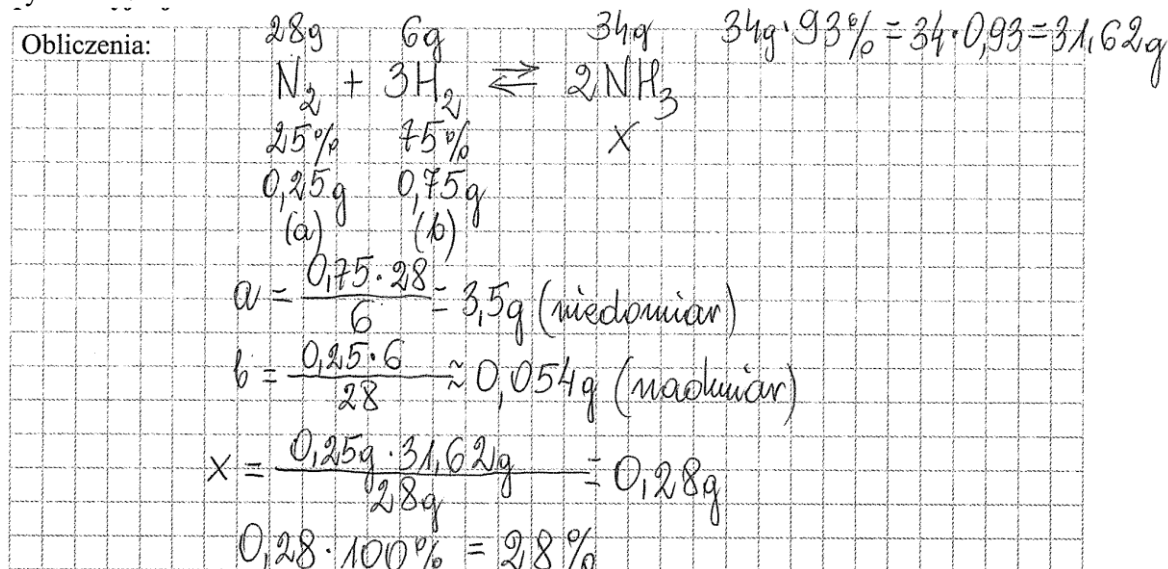 28g 6g 34g 34g·93% = 34·0,93 = 31,62g
Obliczenia:
N₂ + 3H₂ ⇄ 2NH₃
25% 75% X
0,25g 0,75g
(a) (b)
a = \frac{0,75·28}{6} = 3,5g (niedomiar)
b = \frac{0,25·6}{28} ≈ 0,054g (nadmiar)
X = \frac{0,25g·31,62g}{28g} = 0,28g
0,28·100% = 28%